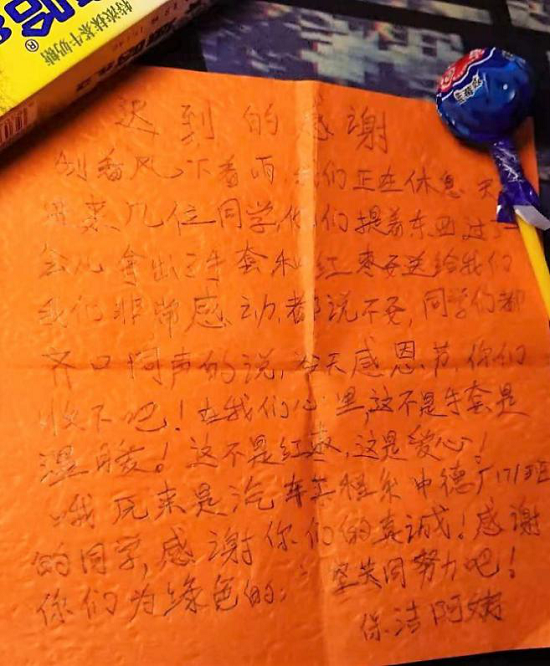 特浓抹茶牛奶糖
迟到的感谢
刮着风下着雨,我们正在休息,天
几位同学他们提着东西过
会儿拿出手套和红枣要送给我们
我们非常感动,都说不要,同学们都
齐口同声的说,今天感恩节,你们
收下吧!在我们心里,这不是手套是
温暖!这不是红枣,这是爱心!
哦原来是汽车工程系中德厂171班
的同学,感谢你们的真诚!感谢
你们为绿色的 共同努力吧!
保洁阿姨